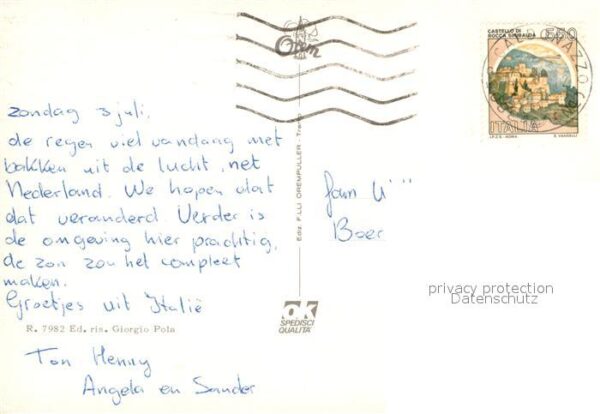 zondag 3 juli,
de regen viel vandaag met
bakken uit de lucht, net
Nederland. We hopen dat
dat veranderd. Verder is
de omgeving hier prachtig,
de zon zou het compleet
maken.
Groetjes uit Italië
R. 7982 Ed. ris. Giorgio Pola
Ton Henny
Angela en Sander
Ediz. F.LLI DREMPULLER
ok
SPEDISCI
QUALITA'
CASTELLO DI
ROCCA SINIBALDA
550
ITALIA
I.P.Z.S. - ROMA
Fam
Boer
privacy protection
Datenschutz